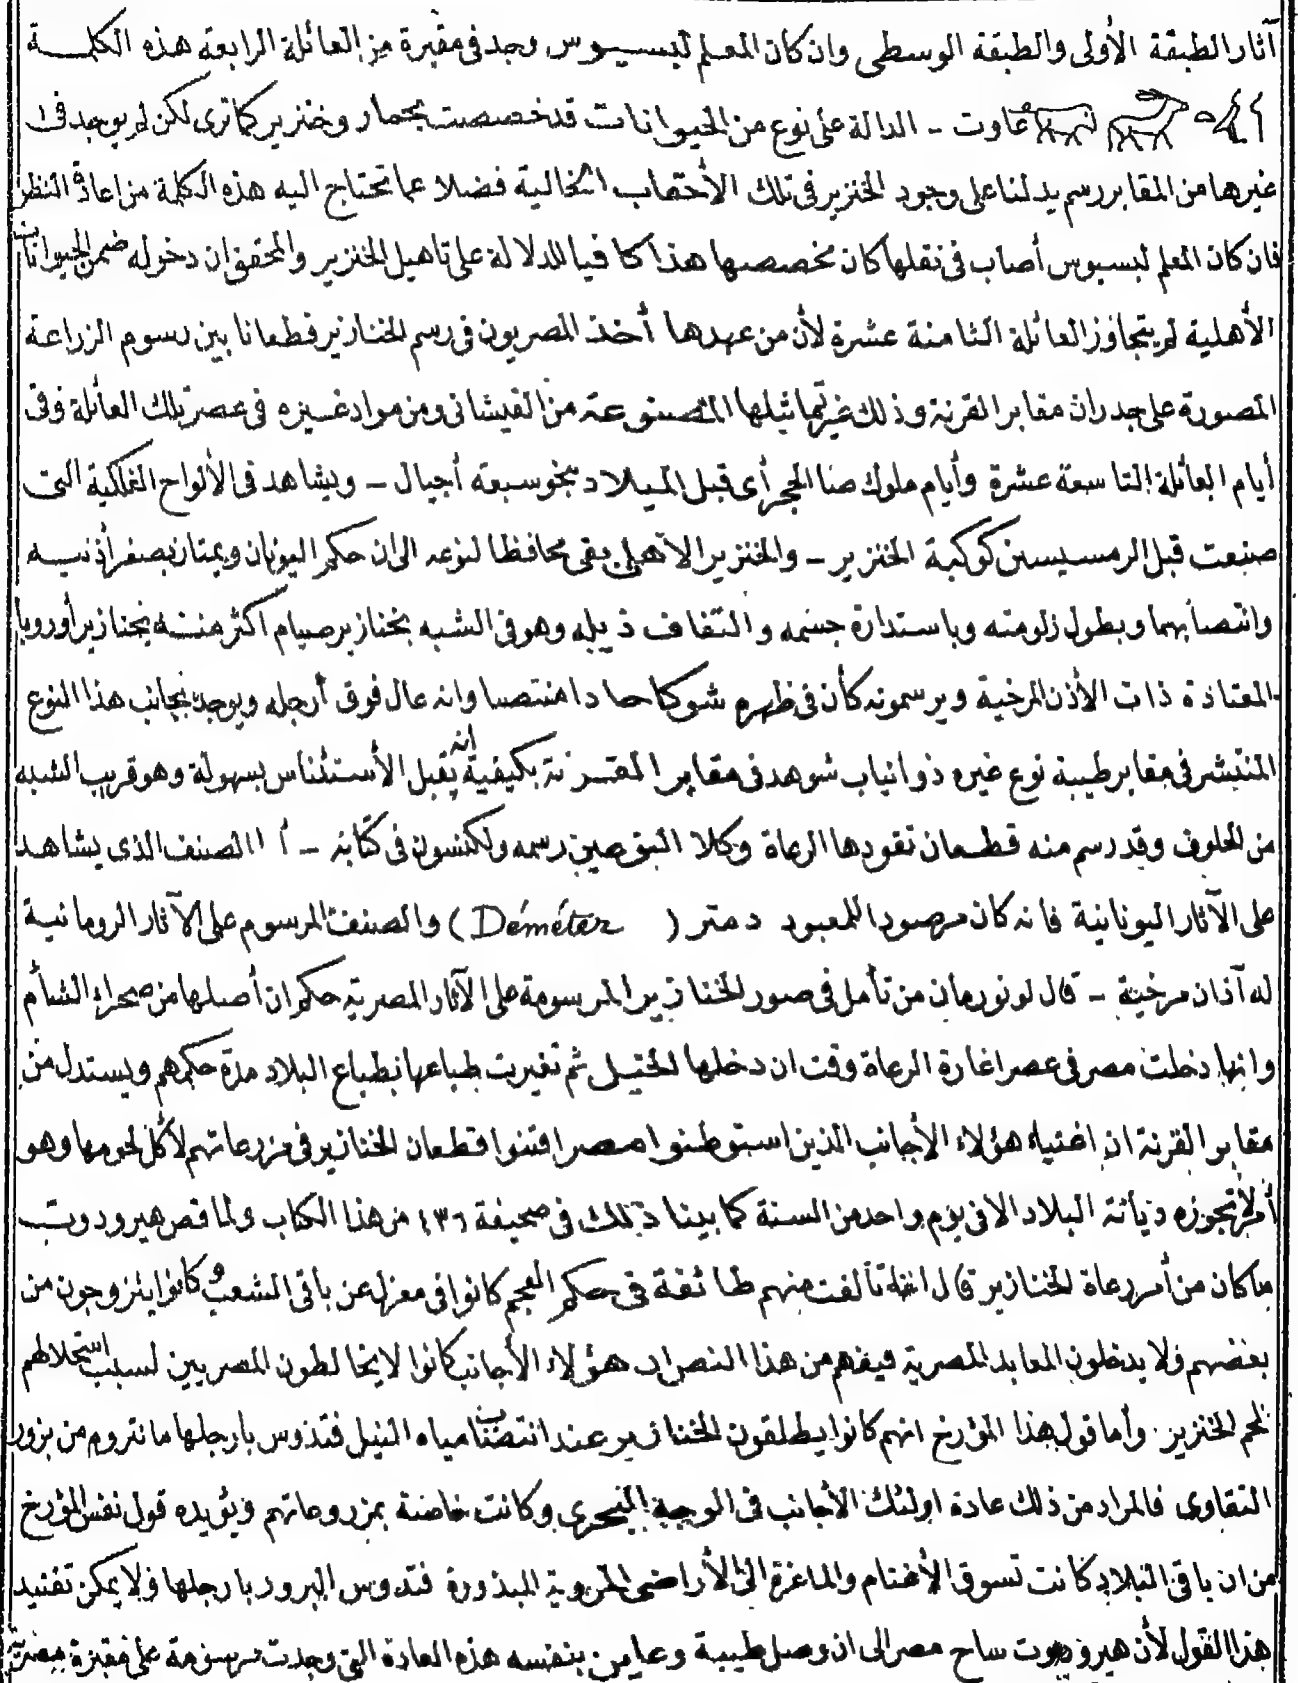 آثار الطبقة الأولى والطبقة الوسطى وان كان المعلم لبسيوس وجد فى مقبرة من العائلة الرابعة هذه الكلمة
عاوت - الدالة على نوع من الحيوانات قد خصصت بحمار وخنزير كما ترى لكن لم يوجد فى
غيرها من المقابر رسم يدلنا على وجود الخنزير فى تلك الأحقاب الخالية فضلا عما تحتاج اليه هذه الكلمة من اعادة النظر
فان كان المعلم لبسيوس أصاب فى نقلها كان مخصصها هذا كافيا للدلالة على تاهيل الخنزير والمحقق ان دخوله ضمن الحيوانات
الأهلية لم يتجاوز العائلة الثامنة عشرة لأن من عهدها أخذ المصريون فى رسم الخنازير قطعانا بين رسوم الزراعة
المصورة على جدران مقابر القرنة وذلك غير تماثيلها المصنوعة من القيشانى ومن مواد غيره فى عصر تلك العائلة وفى
أيام العائلة التاسعة عشرة وأيام ملوك صا الحجر أى قبل الميلاد بنحو سبعة أجيال - ويشاهد فى الألواح الفلكية التى
صنعت قبل الرمسيسين كوكبة الخنزير - والخنزير الأهلى بقى محافظا لنوعه الى ان حكم اليونان ويمتاز بصغر أذنيه
وانتصابهما وبطول زلومته وباستدارة جسمه والتفاف ذيله وهو فى الشبه بخنازير صيام اكثر منه بخنازير أوروبا
المعتادة ذات الأذن المرخية ويرسمونه كأن فى ظهره شوكا حادا منتصبا وانه عال فوق أرجله ويوجد بجانب هذا النوع
المنتشر فى مقابر طيبة نوع غيره ذو انياب شوهد فى مقابر القرنة بكيفية انه يقبل الأستئناس بسهولة وهو قريب الشبه
من الحلوف وقد رسم منه قطعان تقودها الرعاة وكلا النوعين رسمه ولكنسون فى كتابه - أما الصنف الذى يشاهد
على الآثار اليونانية فانه كان مرصودا للمعبود دمتر ( Déméter ) والصنف المرسوم على الآثار الرومانية
له آذان مرخية - قال لونورمان من تأمل فى صور الخنازير المرسومة على الآثار المصرية حكم ان أصلها من صحراء الشأم
وانها دخلت مصر فى عصر اغارة الرعاة وقت ان دخلها الخيل ثم تغيرت طباعها بطباع البلاد مدة حكمهم ويستدل من
مقابر القرنة ان اغنياء هؤلاء الأجانب الذين استوطنوا مصر اقتنوا قطعان الخنازير فى مزرعاتهم لأكل لحومها وهو
أمر لا تجوزه ديانة البلاد الا فى يوم واحد من السنة كما بينا ذلك فى صحيفة ٤٣٦ من هذا الكتاب ولما قص هيرودوت
ما كان من أمر رعاة الخنازير قال انه تألفت منهم طائفة فى حكم العجم كانوا فى معزل عن باقى الشعب وكانوا يتزوجون من
بعضهم ولا يدخلون المعابد المصرية فيفهم من هذا النص ان هؤلاء الأجانب كانوا لا يخالطون المصريين لسبب استحلالهم
لحم الخنزير وأما قول هذا المؤرخ انهم كانوا يطلقون الخنازير عند انتضاب مياه النيل فتدوس بارجلها ما نتروم من بزور
التقاوى فالمراد من ذلك عادة اولئك الأجانب فى الوجه البحرى وكانت خاصة بمزروعاتهم ويؤيده قول نفس المؤرخ
من ان باقى البلاد كانت تسوق الأغنام والماعزة الى الأراضى المروية المبذورة فتدوس البرور بارجلها ولا يمكن تفنيد
هذا القول لأن هيرودوت ساح مصر الى ان وصل طيبة وعاين بنفسه هذه العادة التى وجدت مرسومة على مقبرة مصرية